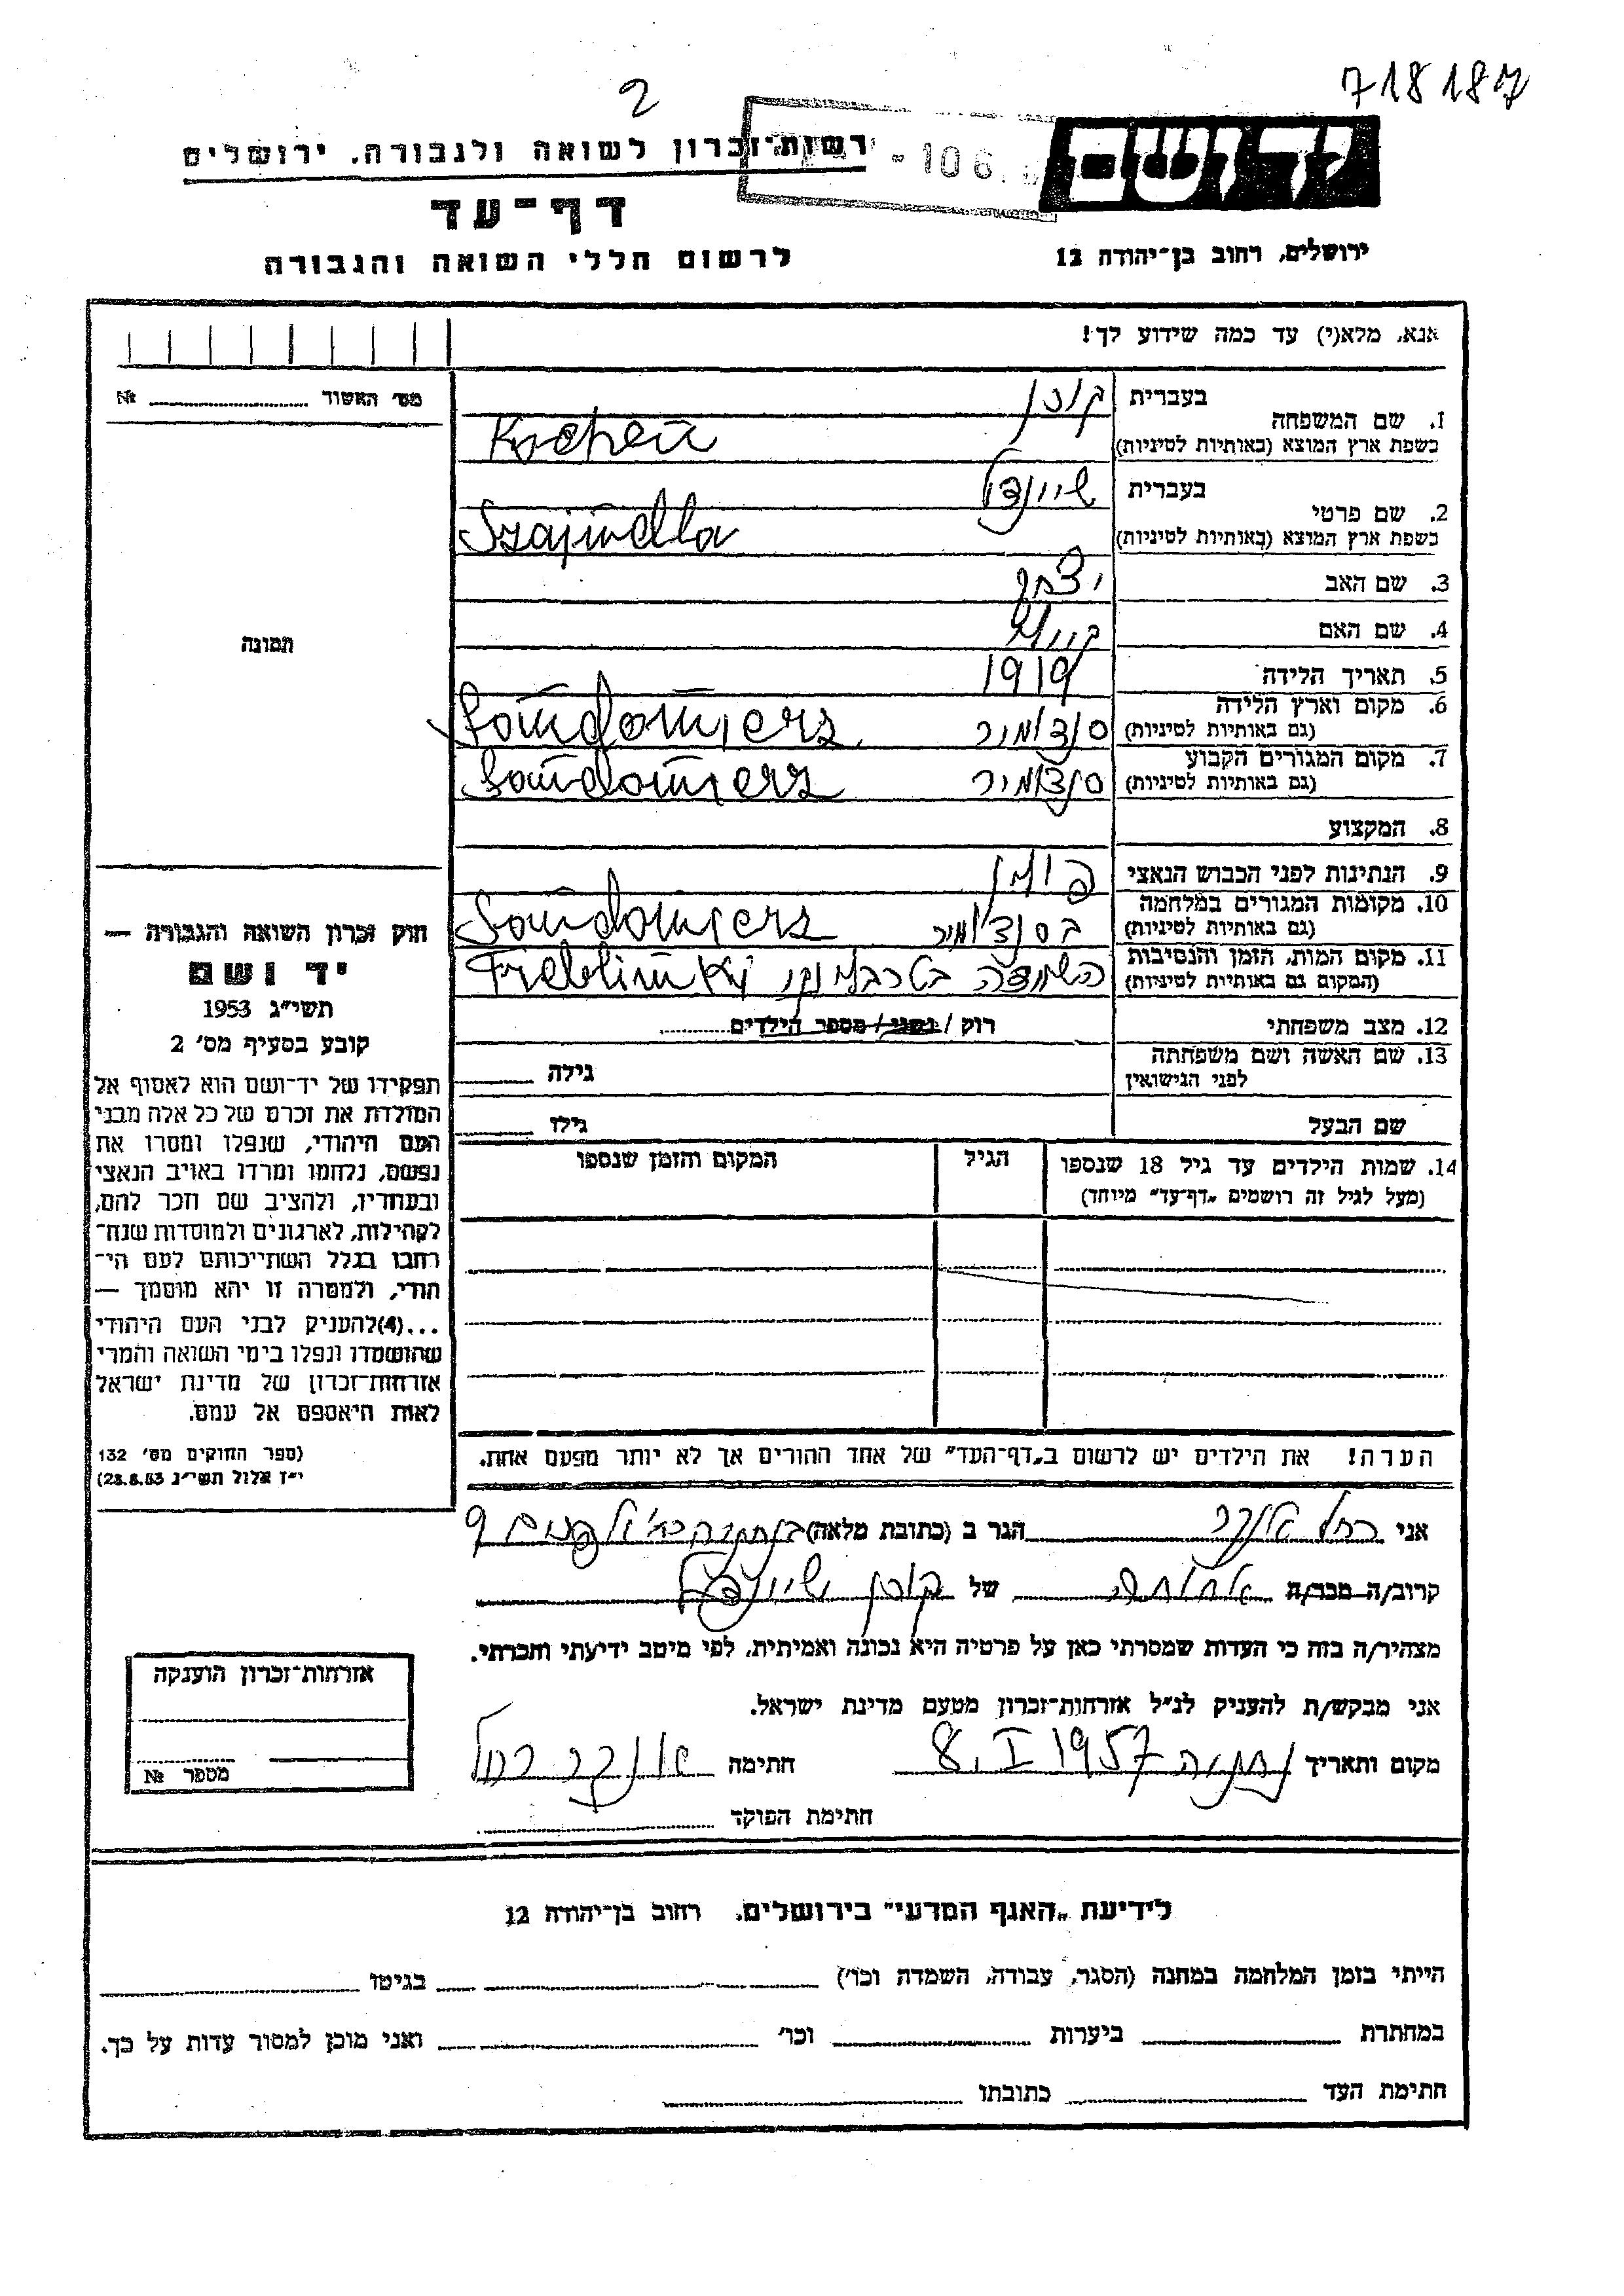 718187
2
רשות־זכרון לשואה ולגבורה, ירושלים
- 10 6.
יד ושם
דף־עד
לרשום חללי השואה והגבורה
ירושלים, רחוב בן־יהודה 12
אנא, מלא(י) עד כמה שידוע לך!
מס׳ האשור № 
1. שם המשפחה
בעברית קוכן
כשפת ארץ המוצא (באותיות לטיניות) Kochen
2. שם פרטי
בעברית שיינדל
כשפת ארץ המוצא (באותיות לטיניות) Szajndla
3. שם האב יצחק
4. שם האם
5. תאריך הלידה 1919
6. מקום וארץ הלידה
(גם באותיות לטיניות) סנדומיר Sandomierz
7. מקום המגורים הקבוע
(גם באותיות לטיניות) סנדומיר Sandomierz
8. המקצוע
9. הנתינות לפני הכבוש הנאצי פולין
10. מקומות המגורים במלחמה
(גם באותיות לטיניות) בסנדומיר Sandomierz
11. מקום המות, הזמן והנסיבות
(המקום גם באותיות לטיניות) הושמדה בטרבלינקי Treblinki
12. מצב משפחתי רוק / נשוי / מספר הילדים
13. שם האשה ושם משפחתה
לפני הנישואין גילה
שם הבעל גילו
14. שמות הילדים עד גיל 18 שנספו הגיל המקום והזמן שנספו
(מעל לגיל זה רושמים „דף־עד״ מיוחד)
הערה! את הילדים יש לרשום ב„דף־העד״ של אחד ההורים אך לא יותר מפעם אחת.
תמונה
חוק זכרון השואה והגבורה —
יד ושם
תשי״ג 1953
קובע בסעיף מס׳ 2
תפקידו של יד־ושם הוא לאסוף אל
המולדת את זכרם של כל אלה מבני
העם היהודי, שנפלו ומסרו את
נפשם, נלחמו ומרדו באויב הנאצי
ובעוזריו, ולהציב שם וזכר להם,
לקהילות, לארגונים ולמוסדות שנח־
רבו בגלל השתייכותם לעם הי־
הודי, ולמטרה זו יהא מוסמך —
...(4)להעניק לבני העם היהודי
שהושמדו ונפלו בימי השואה והמרי
אזרחות־זכרון של מדינת ישראל
לאות היאספם אל עמם.
(ספר החוקים מס׳ 132
י״ז אלול תשי״ג 28.8.53)
אני רחל הגר ב (כתובת מלאה) 9
קרוב/ה מכר/ה אחותה של קוכן שיינדל
מצהיר/ה בזה כי העדות שמסרתי כאן על פרטיה היא נכונה ואמיתית, לפי מיטב ידיעתי והכרתי.
אני מבקש/ת להעניק לנ״ל אזרחות־זכרון מטעם מדינת ישראל.
מקום ותאריך נתניה 8. I 1957 חתימה רחל
חתימת הפוקד
אזרחות־זכרון הוענקה
מספר №
לידיעת „האגף המדעי״ בירושלים, רחוב בן־יהודה 12
הייתי בזמן המלחמה במחנה (הסגר, עבודה, השמדה וכו׳) בגיטו
במחתרת ביערות וכו׳ ואני מוכן למסור עדות על כך.
חתימת העד כתובתו